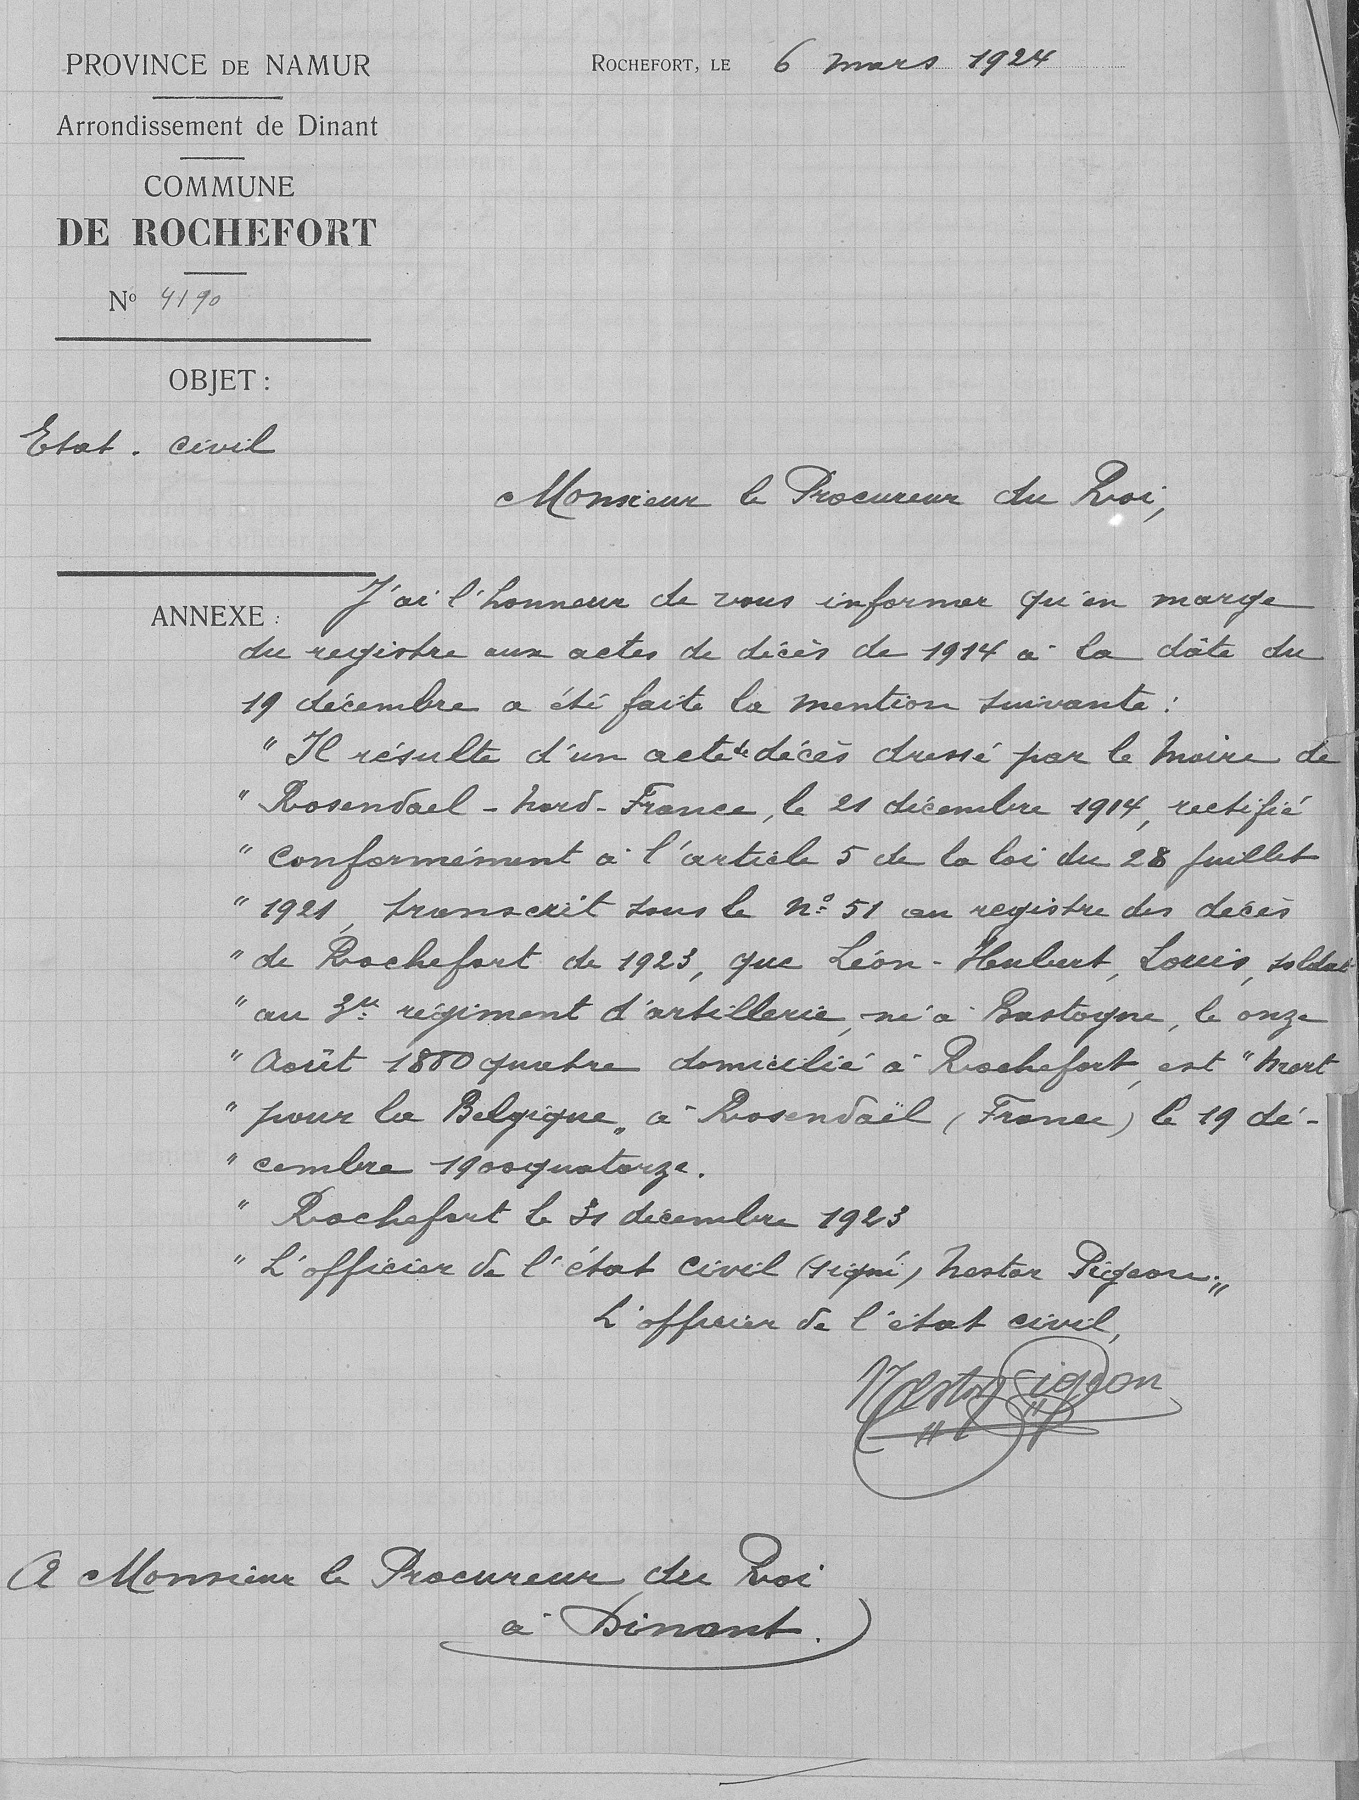 PROVINCE DE NAMUR
Arrondissement de Dinant
COMMUNE
DE ROCHEFORT
No 4190
ROCHEFORT, LE 6 mars 1924
OBJET :
Etat. civil
Monsieur le Procureur du Roi,
ANNEXE :
J'ai l'honneur de vous informer qu'en marge
du registre aux actes de décès de 1914 à la dâte du
19 décembre a été faite la mention suivante :
" Il résulte d'un acte de décès dressé par le Maire de
" Rosendael - Nord - France, le 21 décembre 1914, rectifié
" conformément à l'article 5 de la loi du 28 Juillet
" 1921, transcrit sous le No 51 au registre des décès
" de Rochefort de 1923, que Léon - Hubert, Louis, soldat
" au 3me régiment d'artillerie, né à Bastogne, le onze
" Août 1880quatre domicilié à Rochefort, est "Mort
" pour la Belgique" à Rosendaël (France) le 19 dé-
" cembre 1900quatorze.
" Rochefort le 31 décembre 1923
" L'officier de l'état civil (signé) Nestor Pigeon."
L'officier de l'état civil,
Nestor Pigeon
A Monsieur le Procureur du Roi
à Dinant.